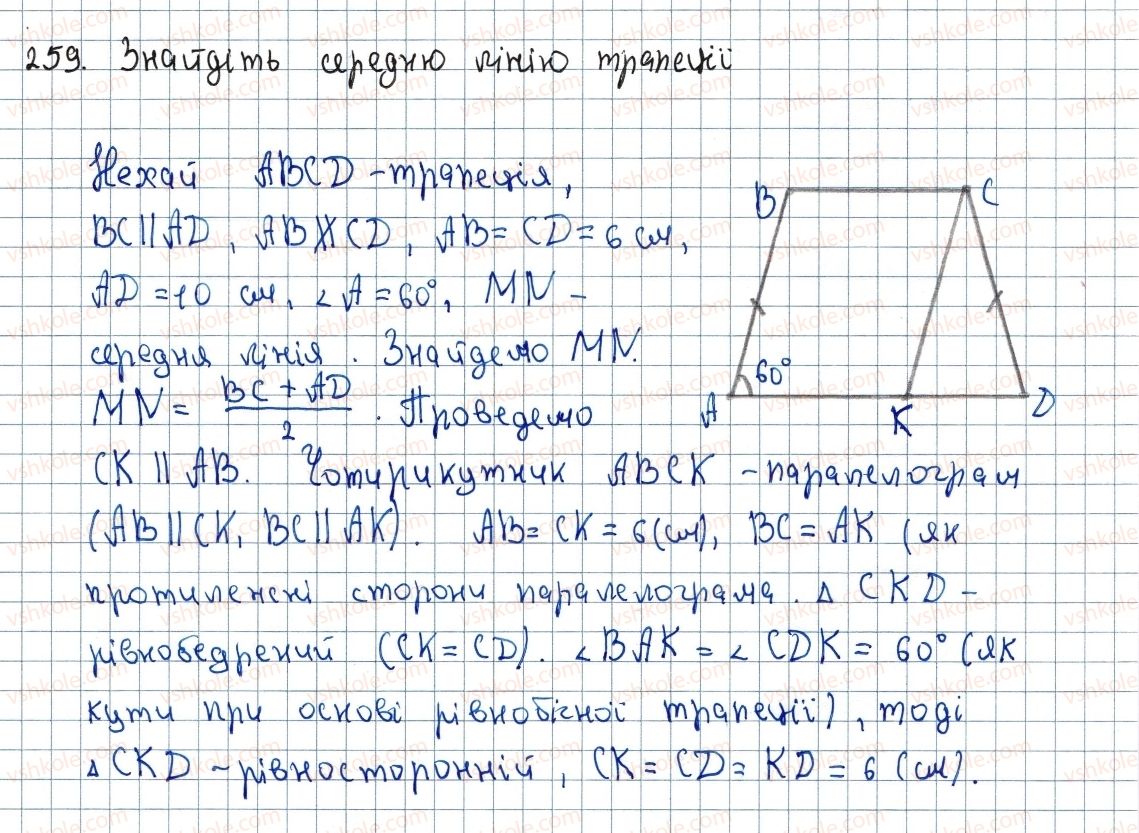 259. Знайдіть середню лінію трапеції
Нехай ABCD - трапеція,
BC || AD, AB ∦ CD, AB = CD = 6 см,
AD = 10 см, ∠A = 60°, MN -
середня лінія. Знайдемо MN.
MN = (BC + AD)/2. Проведемо
CK || AB. Чотирикутник ABCK - паралелограм
(AB || CK, BC || AK). AB = CK = 6 (см), BC = AK (як
протилежні сторони паралелограма. △ CKD -
рівнобедрений (CK = CD). ∠BAK = ∠CDK = 60° (як
кути при основі рівнобічної трапеції), тоді
△ CKD - рівносторонній, CK = CD = KD = 6 (см).
B C
60°
A K D
vshkole.com